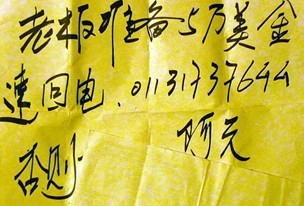 老板准备5万美金
速回电.01131737644
否则 阿元